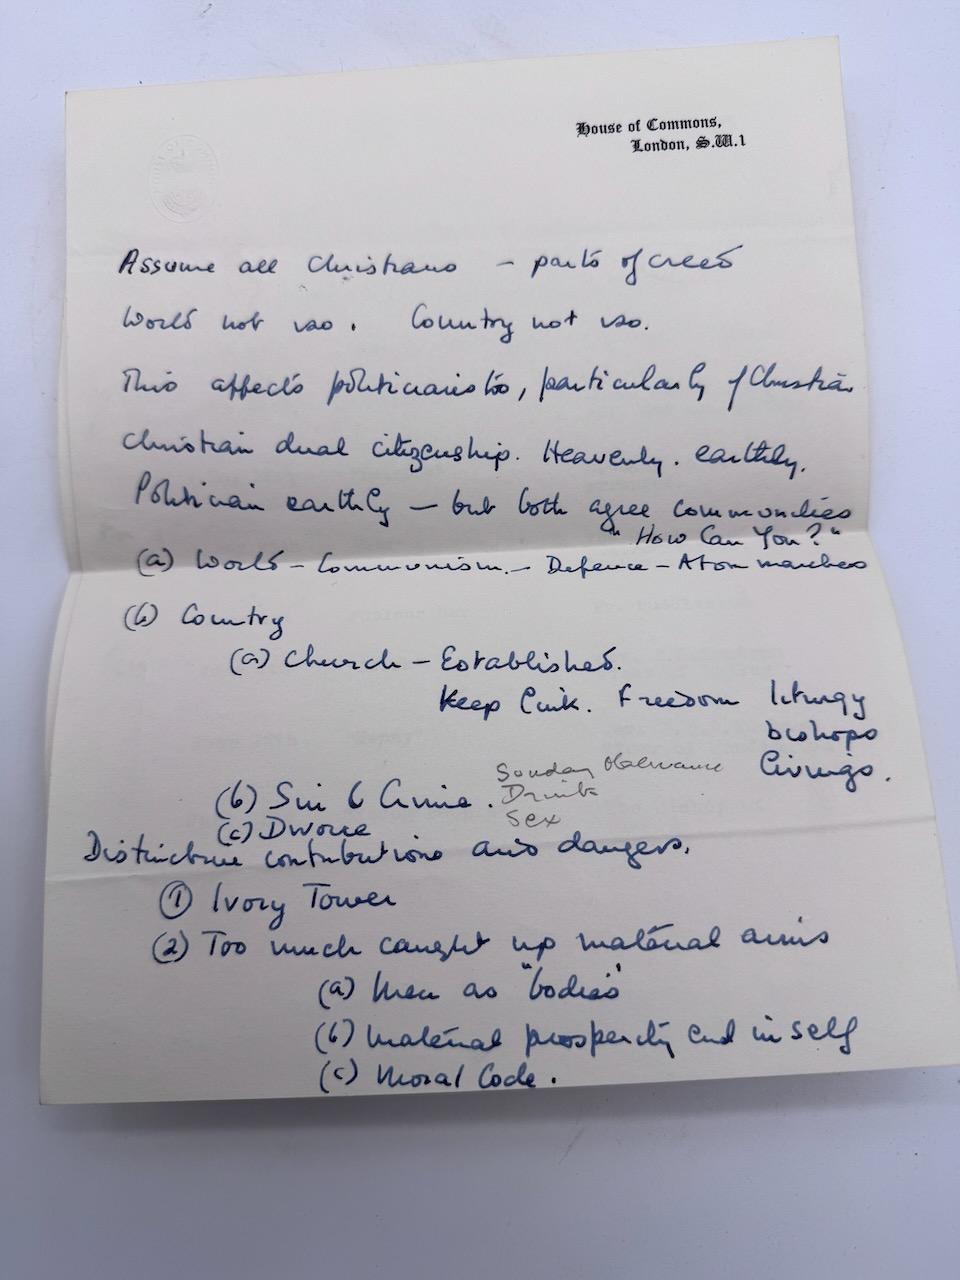 House of Commons,
London, S.W.1
Assume all Christians — parts of creed
World not so. Country not so.
This affects politicians too, particularly if Christian
Christian dual citizenship. Heavenly. earthly.
Politician earthly — but both agree communities
"How Can You?"
(a) World — Communism. — Defence — Atom marches
(b) Country
(a) Church — Established.
Keep link. Freedom liturgy
bishops
livings.
Sunday Observance
(b) Sin & Crime. Drink
Sex
(c) Divorce
Distinctive contributions and dangers.
① Ivory Tower
(2) Too much caught up material aims
(a) Men as "bodies"
(b) Material prosperity end in self
(c) Moral Code.